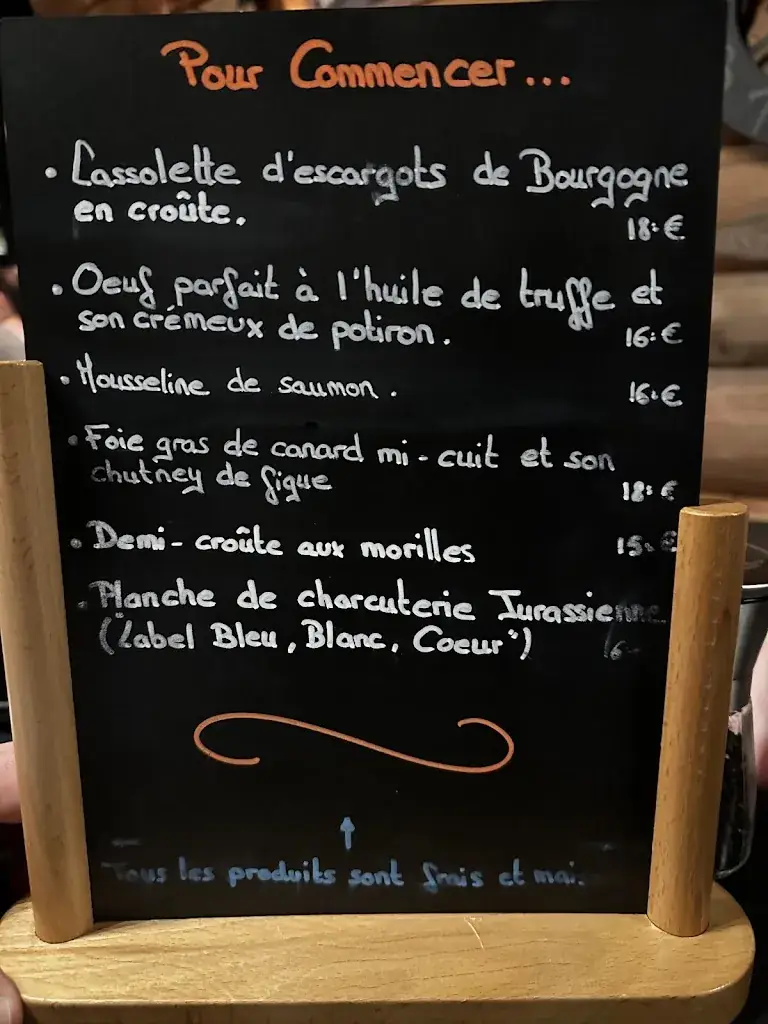 Pour Commencer...
• Cassolette d'escargots de Bourgogne
en croûte.
18.€
• Oeuf parfait à l'huile de truffe et
son crémeux de potiron.
16.€
• Mousseline de saumon.
16.€
• Foie gras de canard mi-cuit et son
chutney de figue
18.€
• Demi-croûte aux morilles
15.€
• Planche de charcuterie Jurassienne
(Label Bleu, Blanc, Coeur")
Tous les produits sont frais et